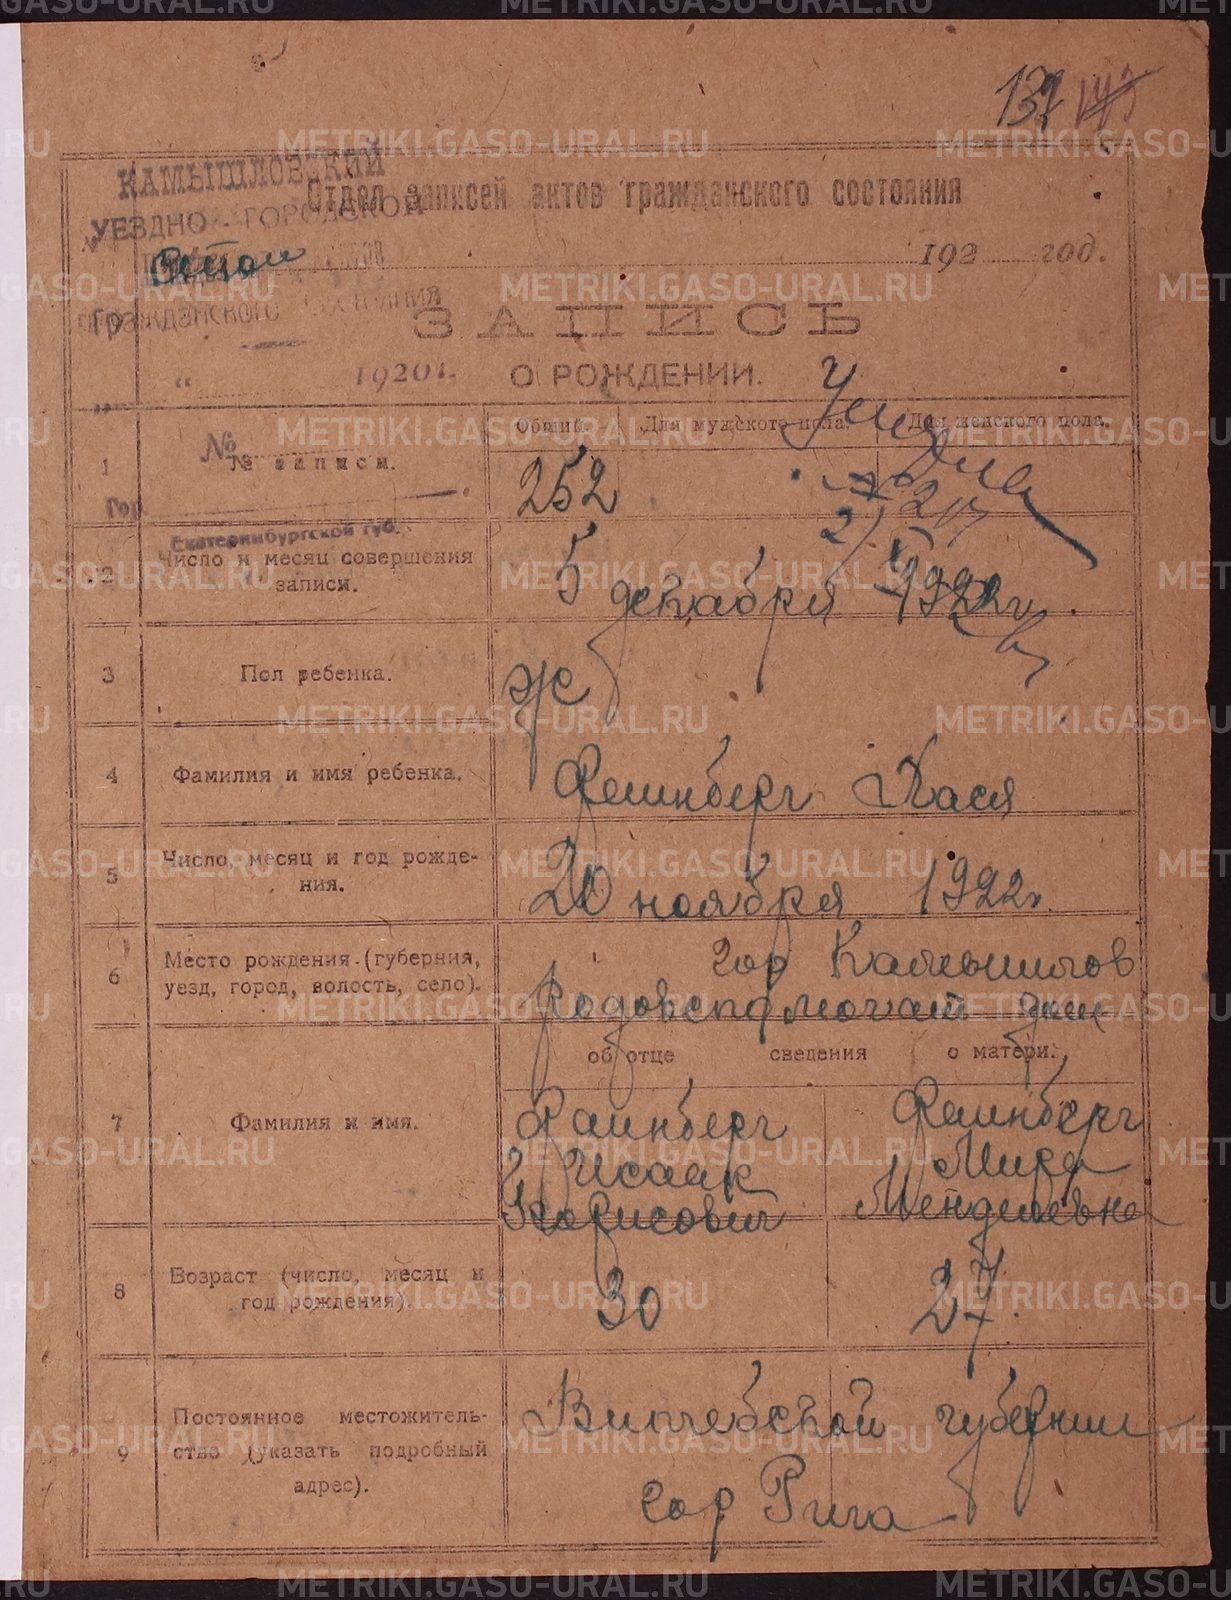 137 143
КАМЫШЛОВСКИЙ
Отдел записей актов гражданского состояния
УЕЗДНО-ГОРОДСКОЙ
192 год.
гражданского состояния
ЗАПИСЬ
" 1920 г. О РОЖДЕНИИ.
Общий. Для мужского пола. Для женского пола.
1 № № записи. 252
Гор.
Екатеринбургской губ.
2 Число и месяц совершения записи. 5 декабря 1922 г.
3 Пол ребенка. ж
4 Фамилия и имя ребенка. Феинберг Хася
5 Число, месяц и год рожде-
ния. 20 ноября 1922 г.
6 Место рождения (губерния, гор Камышлов
уезд, город, волость, село). Родовспомогат дом
об отце сведения о матери.
7 Фамилия и имя. Фаинберг Феинберг
Исаак Мира
Борисович Менделевна
8 Возраст (число, месяц и
год рождения). 30 27
9 Постоянное местожитель- Витебской губернии
ство (указать подробный
адрес). гор Рига
METRIKI.GASO-URAL.RU